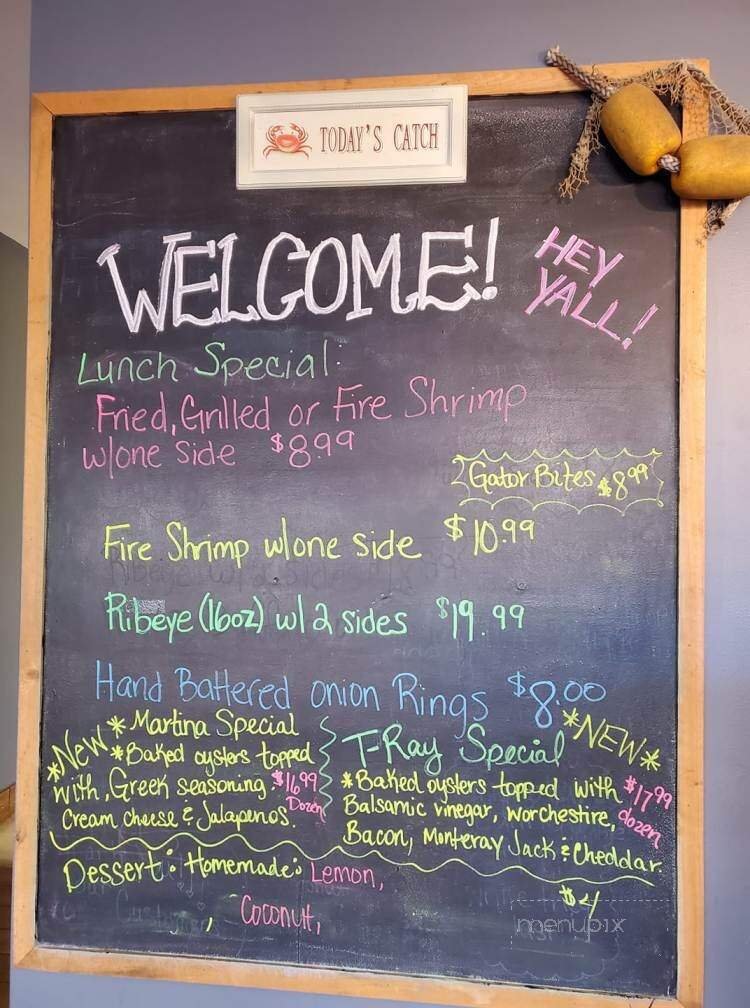 TODAY'S CATCH
WELCOME!
HEY
YALL!
Lunch Special:
Fried, Grilled or Fire Shrimp
w/one side $8.99
2 Gator Bites $8.99
Fire Shrimp w/one side $10.99
Ribeye (16oz) w/ 2 sides $19.99
Hand Battered onion Rings $8.00
*New* Martina Special
*Baked oysters topped
with, Greek seasoning $16.99
Cream cheese & Jalapenos. Dozen
T-Ray Special *NEW*
*Baked oysters topped with $17.99
Balsamic vinegar, worchestire, dozen
Bacon, Monteray Jack & Cheddar.
Dessert: Homemade: Lemon,
, Coconut,
$4
menupix